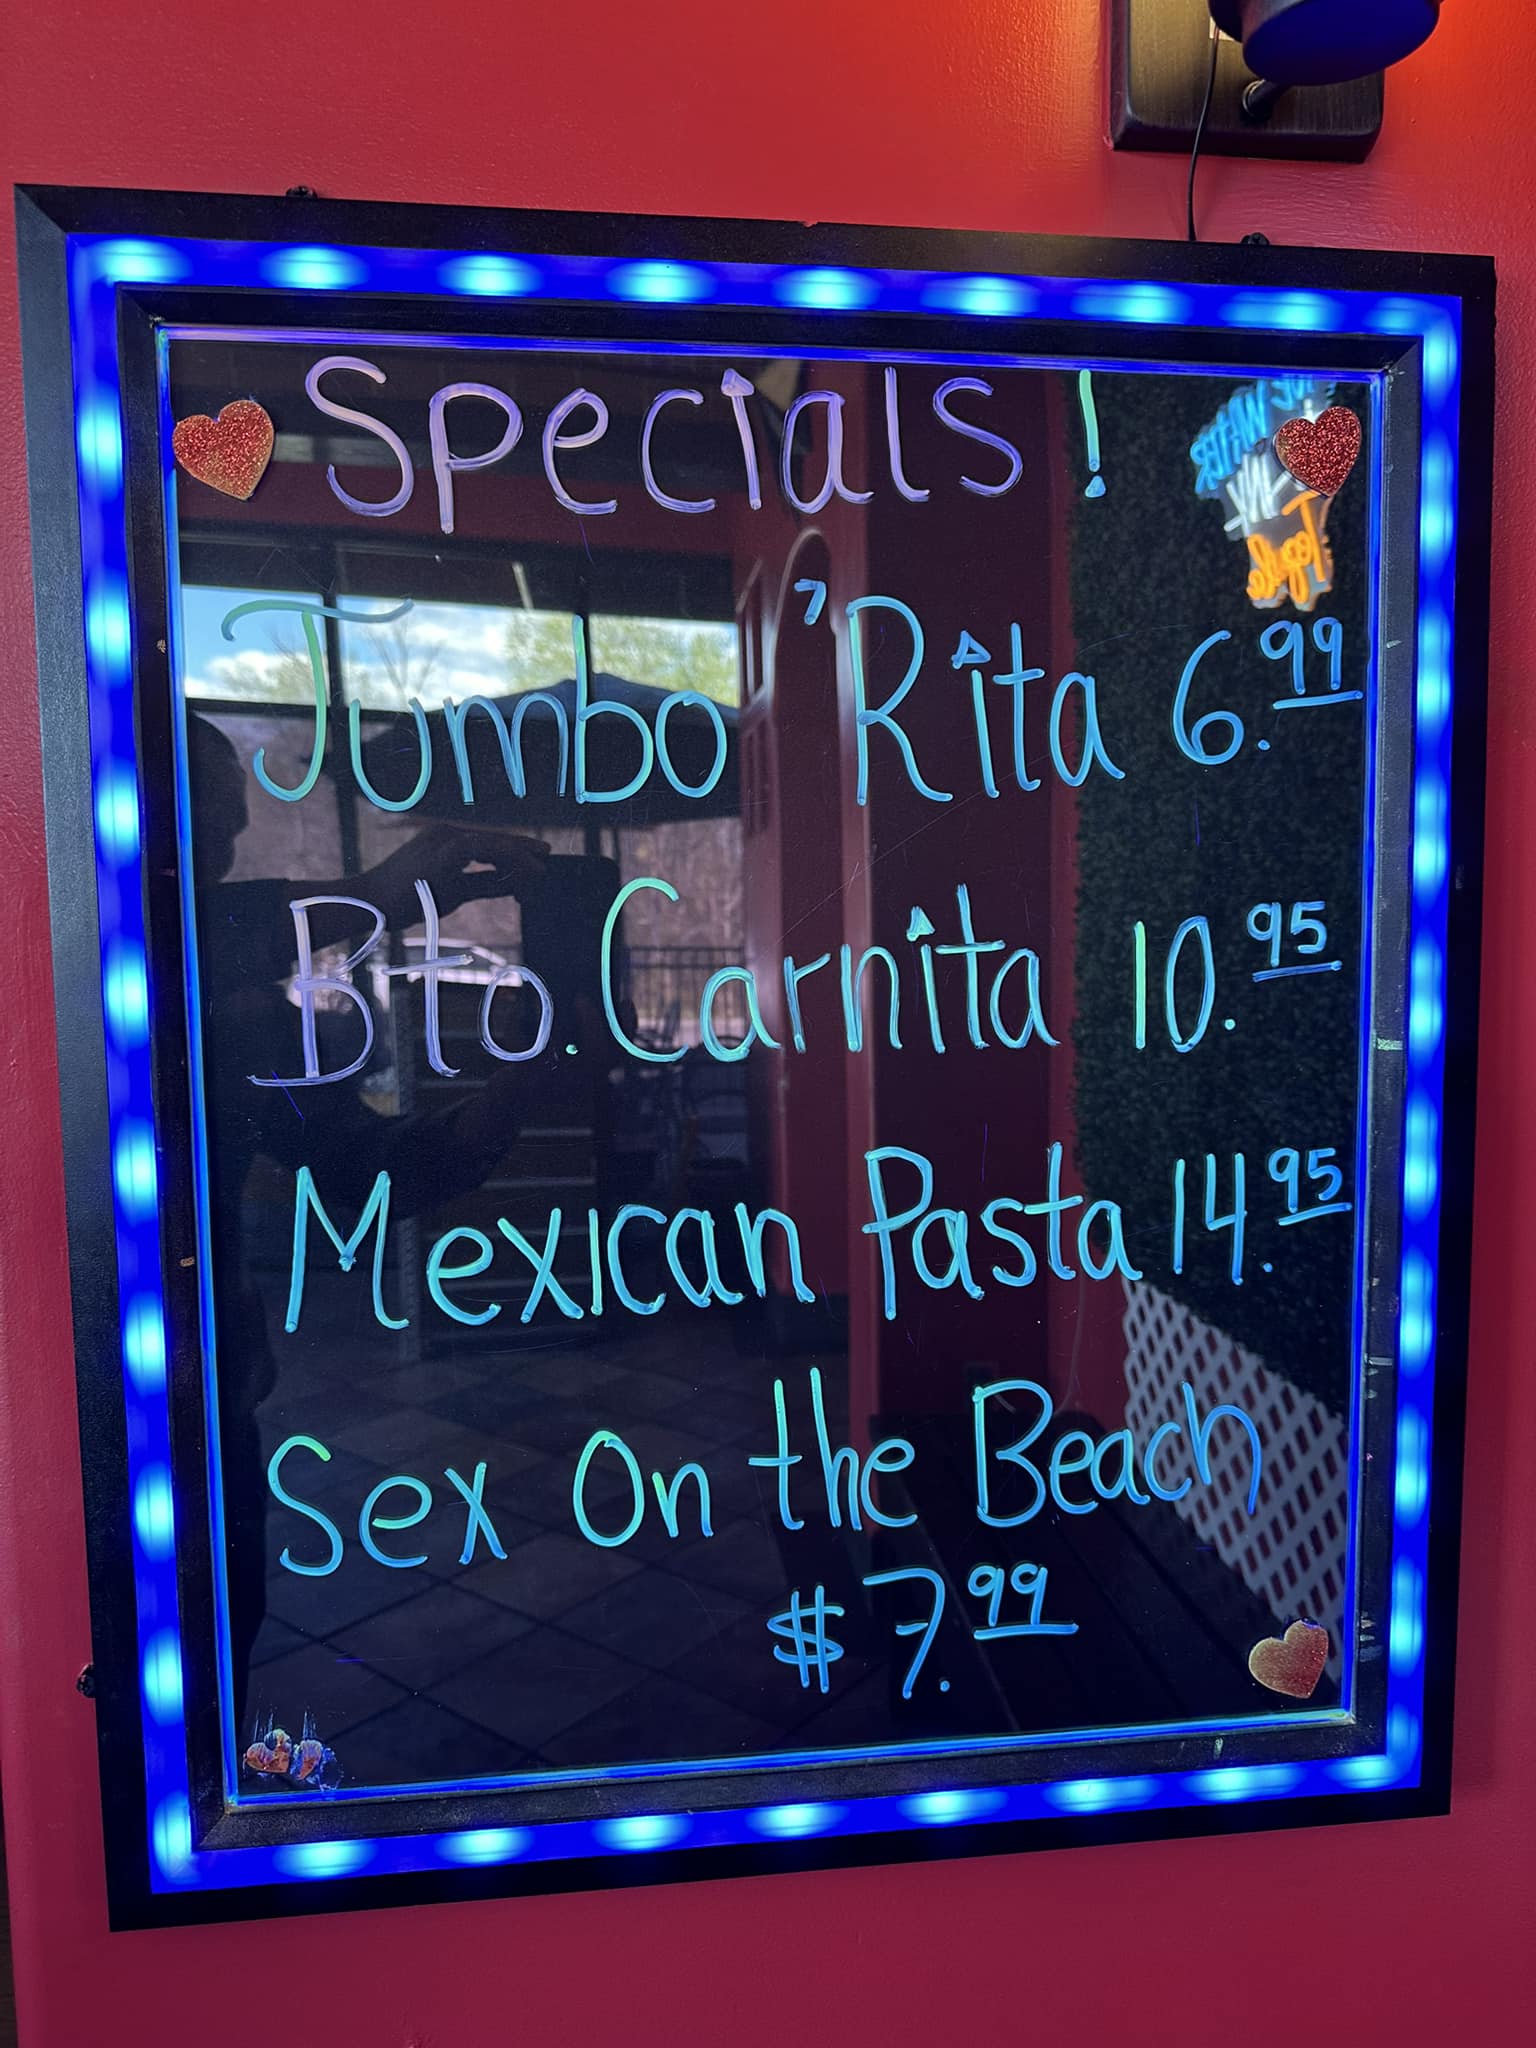 Specials!
Jumbo 'Rita 6.99
Bto. Carnita 10.95
Mexican Pasta 14.95
Sex On the Beach
$7.99
WATER
Tequila